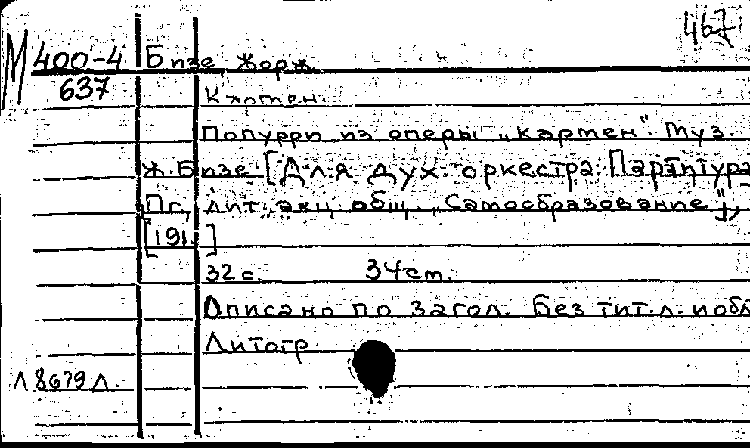 467
М 400-4 Бизе Жорж.
637 Кармен.
Попурри из оперы „Кармен". Муз.
Ж. Бизе [Для дух. оркестра. Партитура
Пг, лит. акц. общ. „Самообразование"],
[191 ]
32 с. 34 см.
Описано по загол. Без тит. л. и обл
Литогр.
Л 8679 Л.